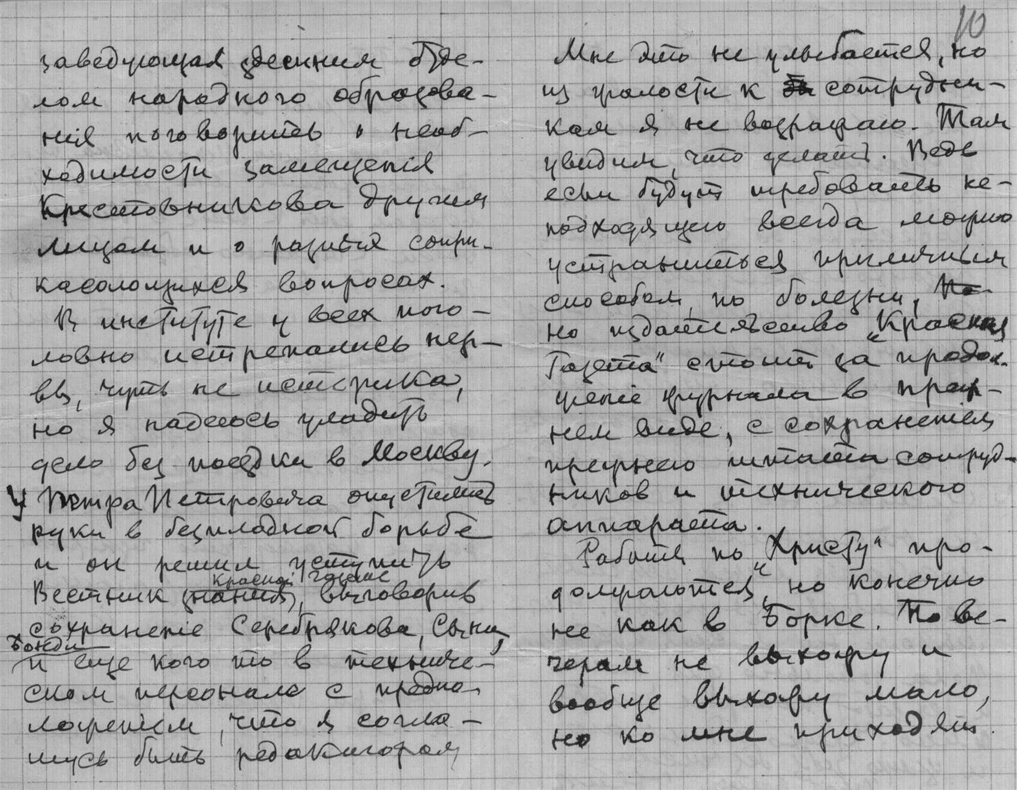 10
заведующая здешним отде-
лом народного образова-
нія поговорить о необ-
ходимости замещенія
Крестовникова другим
лицом и о разных сопри-
касающихся вопросах.
В институте у всех пого-
ловно истрепались нер-
вы, чуть не истерика,
но я надеюсь уладить
дело без поездки в Москву.
У Петра Петровича опустились
руки в безплодной борьбе
и он решил уступить
Красной газете
Вестник , выговорив
сохраненіе Серебрякова,
Бонди
и еще кого то в техниче-
ском персонале с предпо-
ложеніем, что я согла-
шусь быть редактором
Мне это не улыбается, но
из жалости к сотрудни-
кам я не возражаю. Там
увидим, что делать. Ведь
если будут требовать не-
подходящего всегда можно
устраниться приличным
способом, по болезни,
но издательство „Красная
Газета" стоит за продол-
женіе журнала в преж-
нем виде, с сохраненіем
прежнего штата сотруд-
ников и технического
аппарата.
Работа по „Христу" про-
должается, но конечно
не как в Борке. По ве-
черам не выхожу и
вообще выхожу мало,
но ко мне приходят.